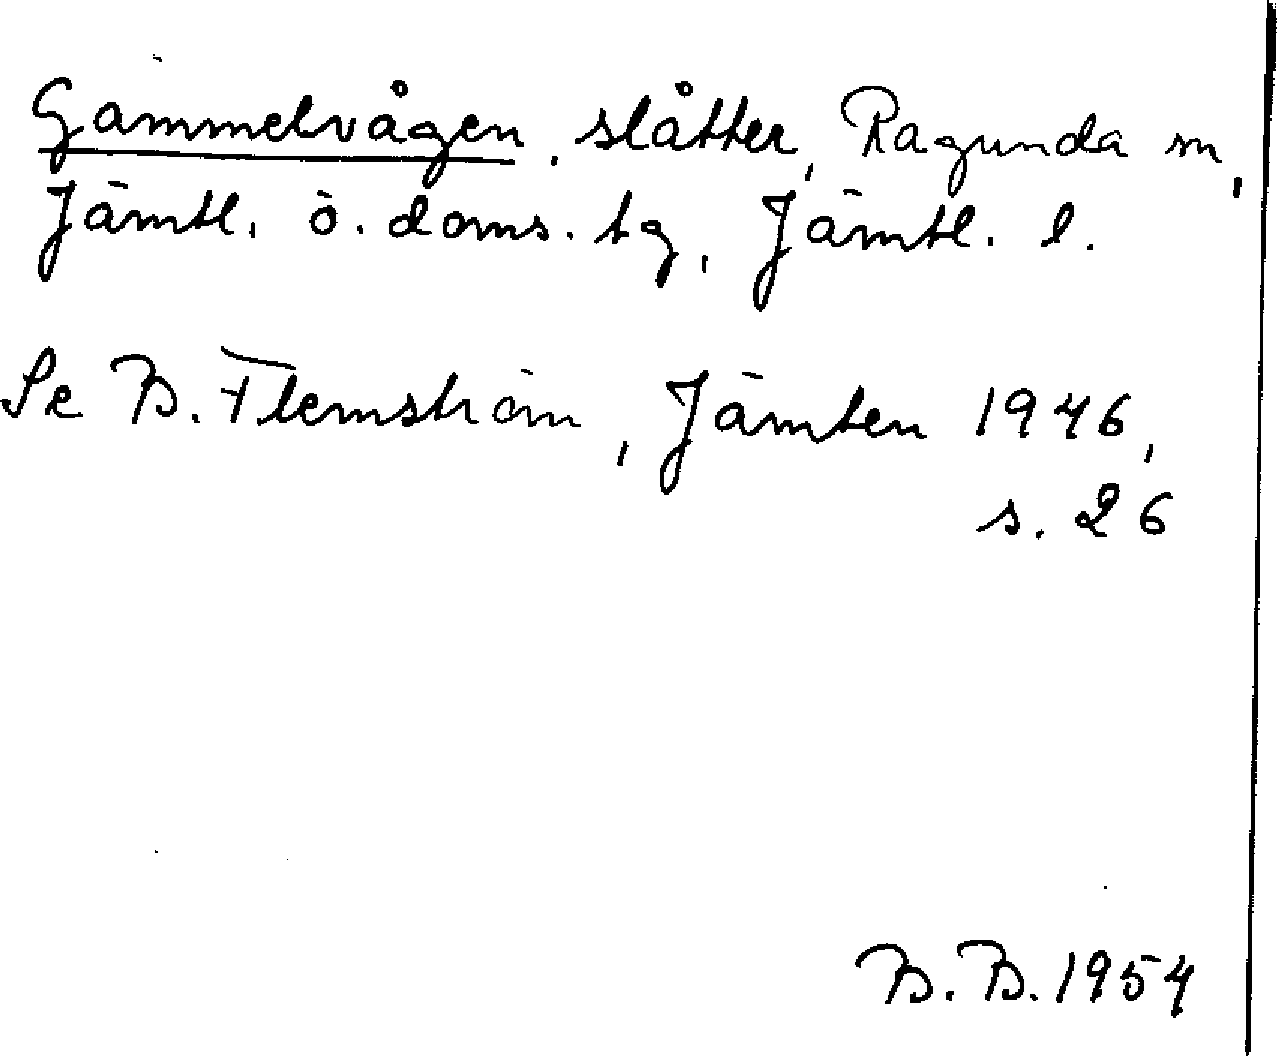 Gammelvågen, slåtter, Ragunda sn,
Jämtl. ö. doms. tg, Jämtl. l.
Se B. Flemström, Jämten 1946,
s. 26
B. B. 1954